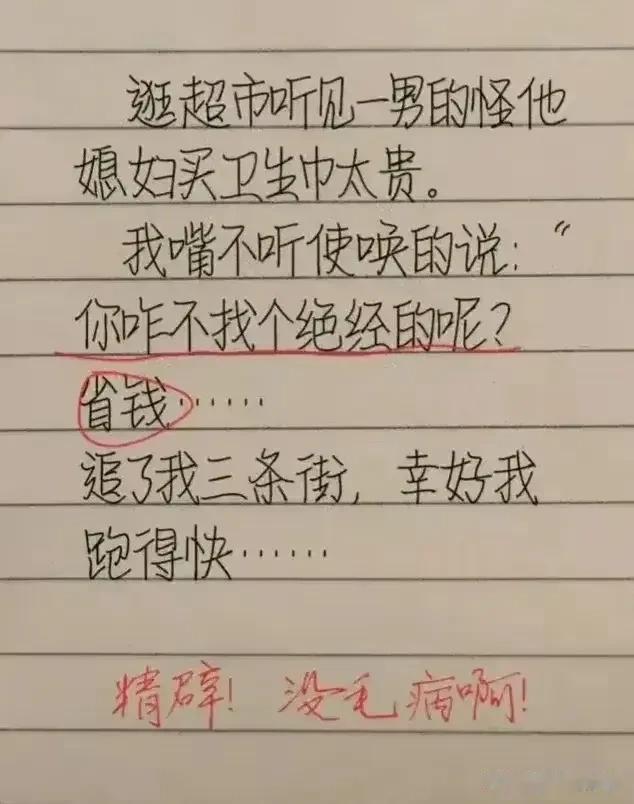 逛超市听见一男的怪他
媳妇买卫生巾太贵。
我嘴不听使唤的说：“
你咋不找个绝经的呢？
省钱……
追了我三条街，幸好我
跑得快……
精辟！没毛病啊！